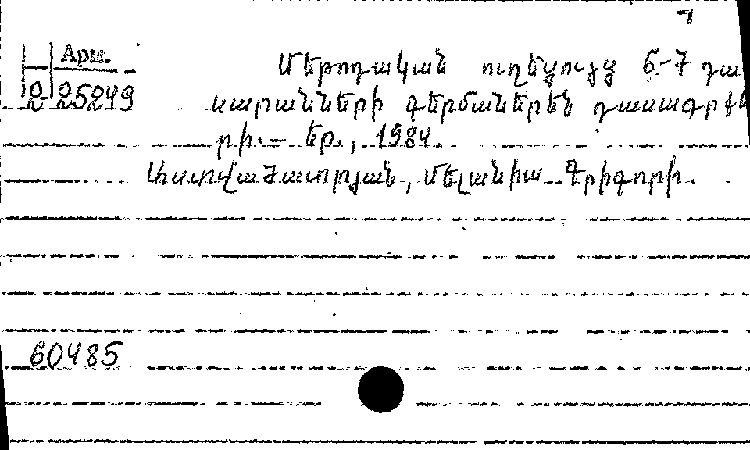 Арм.
Մեթոդական ուղեցույց 6-7 դա
2 25249
սարանների գերմաներեն դասագրքե
րի.— Եր., 1984.
Աստվածատրյան, Մելանիա Գրիգորի.
60485